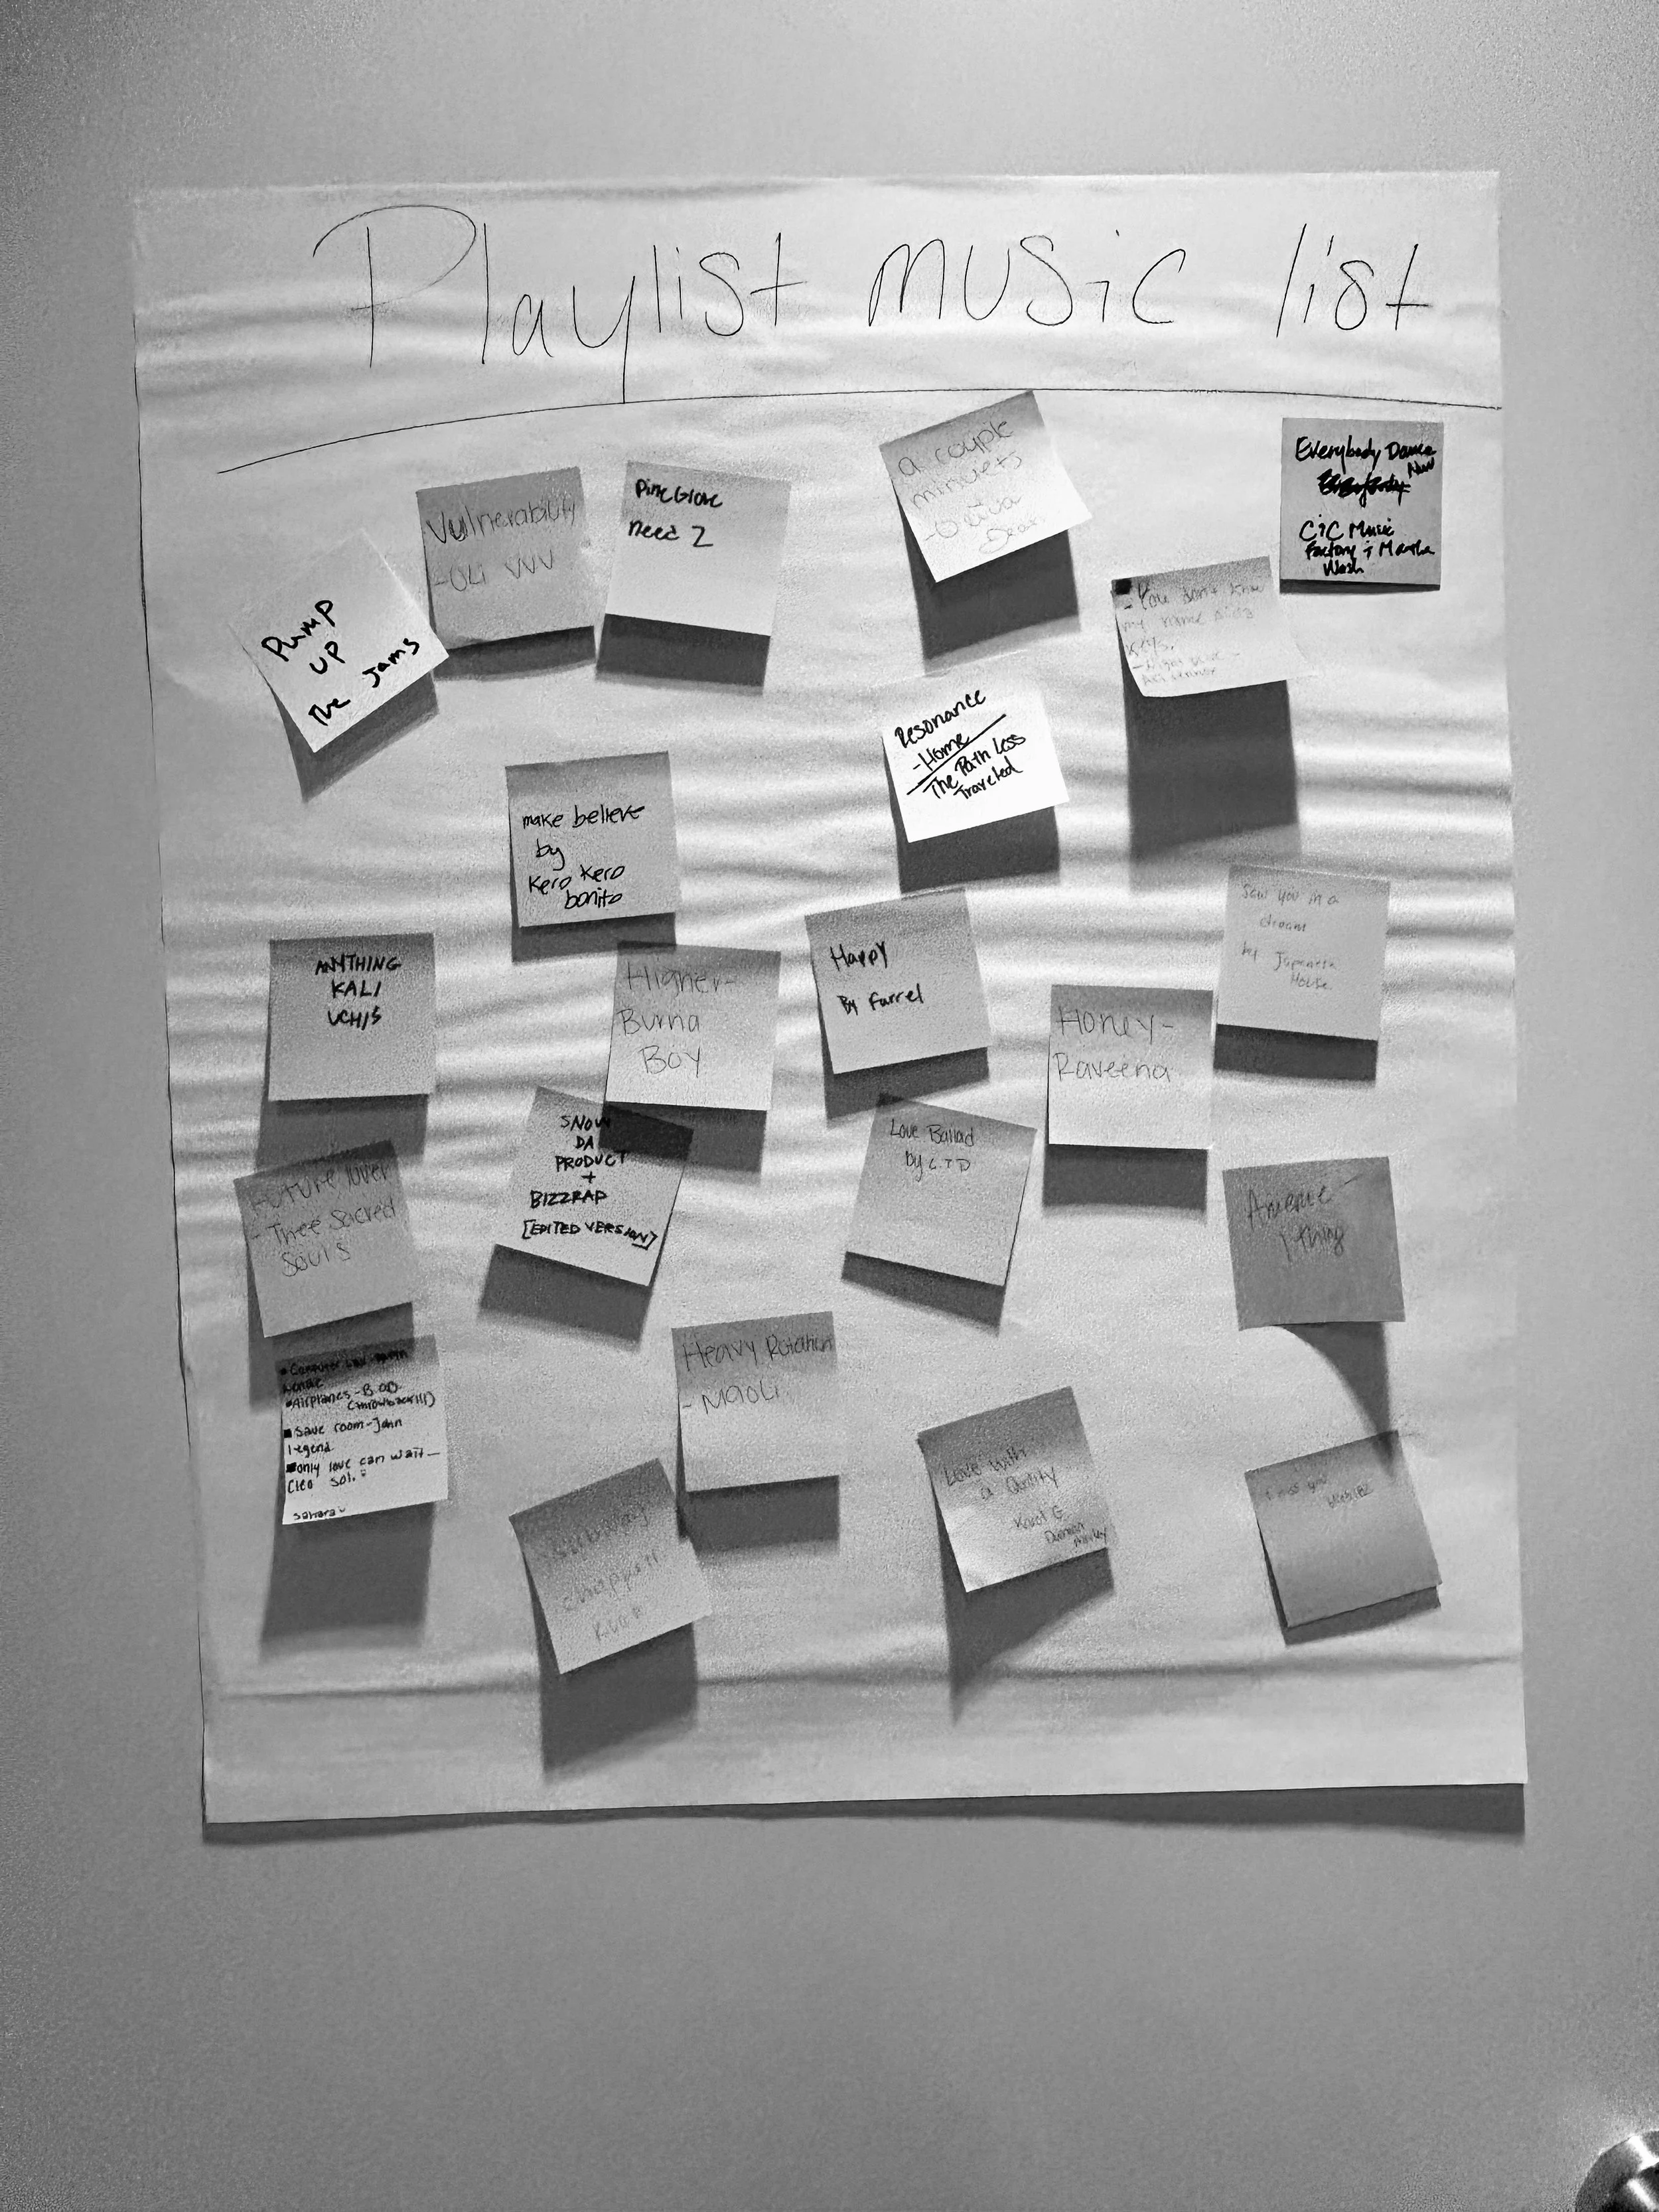 Playlist music list
Vulnerability
- Oli VVV
need 2
a couple
minuets
- Olivia
Dean
Everybody Dance
Now
C&C Music
Factory &
Wash
Pump
UP
The Jams
- You don't know
my name
keys.
Resonance
- Home
The Path Less
Traveled
make believe
by
Kero Kero
bonito
Saw you in a
dream
by Japenese
House
ANYTHING
KALI
UCHIS
Higher-
Burna
BOY
Happy
By Farrel
Honey-
Raveena
SNOW
DA
PRODUCT
+
BIZZRAP
[EDITED VERSION]
Love Ballad
by LTD
Future lover
- Thee Sacred
Souls
Amerie -
1 thing
Heavy Rotation
- Maoli
Computer
•Airplanes-B.OB
(throwback!!!)
save room-John
legend
only love can wait-
Cleo sol.
Love with
a Quality
I miss you
blink 182
chappell